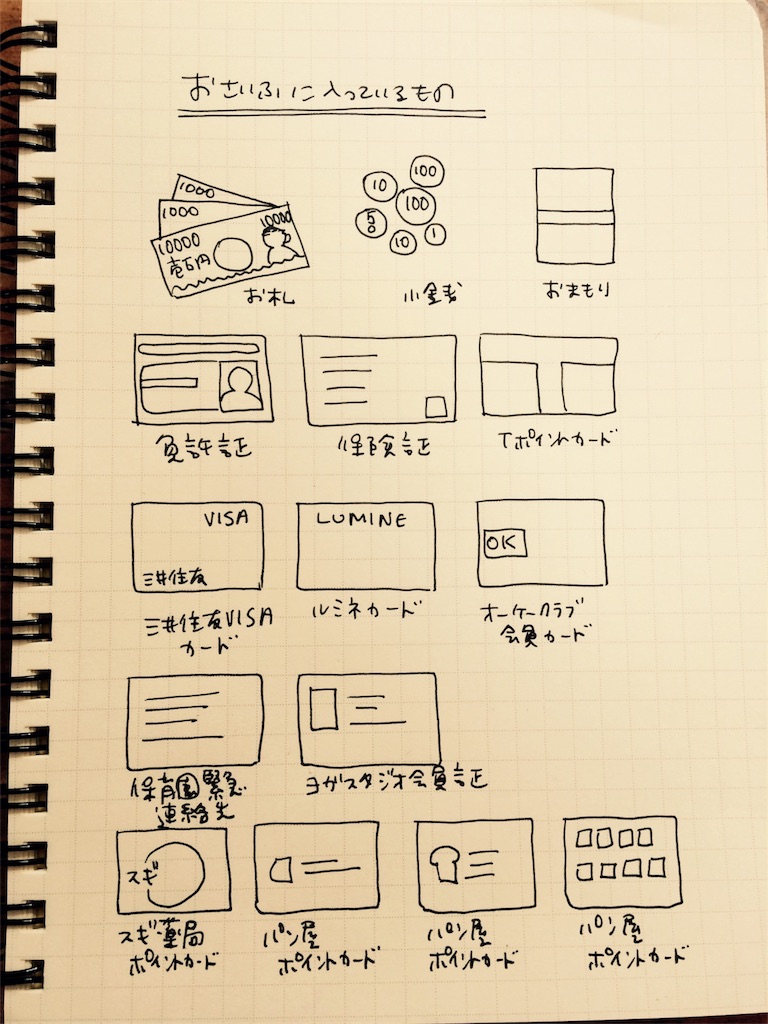 おさいふに入っているもの
1000
1000
10000
10000
壱万円
お札
10
100
100
50
10
1
小銭
おまもり
免許証
保険証
Tポイントカード
VISA
三井住友
三井住友VISA
カード
LUMINE
ルミネカード
OK
オーケークラブ
会員カード
保育園緊急
連絡先
ヨガスタジオ会員証
スギ
スギ薬局
ポイントカード
パン屋
ポイントカード
パン屋
ポイントカード
パン屋
ポイントカード